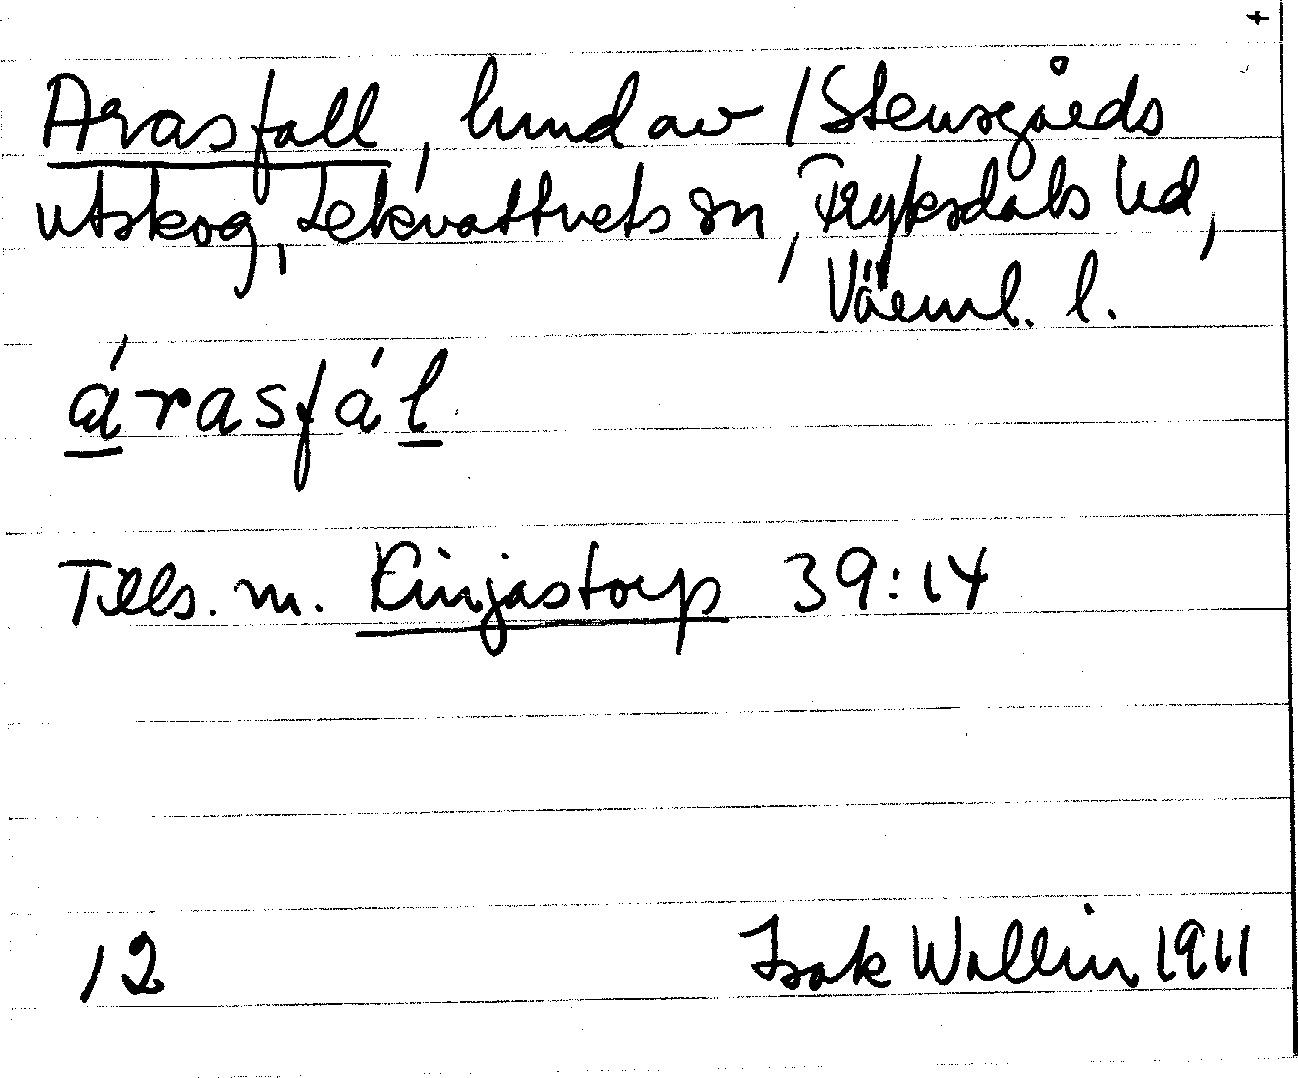 +
Arasfall, hmd av 1/Stensgårds
utskog, Lekvattnets sn, Fryksdals hd,
Värml. l.
árasfál
Tills. m. Kinjastorp 39:14
12
Isak Wallin 1911